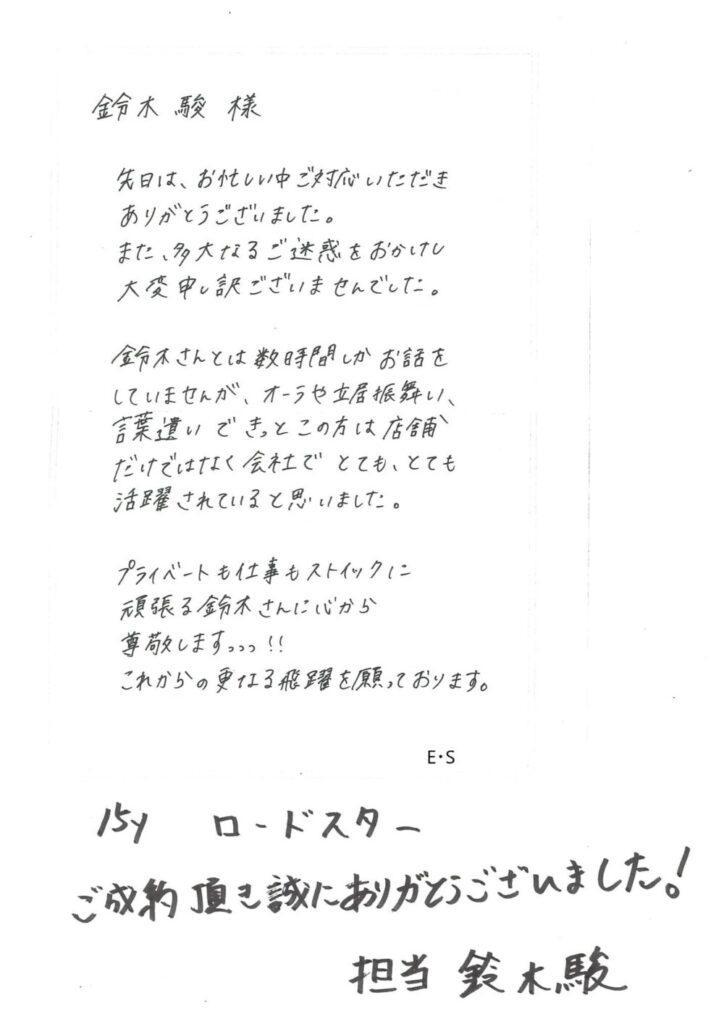 鈴木 駿 様
先日は、お忙しい中ご対応いただき
ありがとうございました。
また、多大なるご迷惑をおかけし
大変申し訳ございませんでした。
鈴木さんとは数時間しかお話を
していませんが、オーラや立居振舞い、
言葉遣いできっとこの方は店舗
だけではなく会社でとても、とても
活躍されていると思いました。
プライベートも仕事もストイックに
頑張る鈴木さんに心から
尊敬しますっっっ!!
これからの更なる飛躍を願っております。
E・S
15y ロードスター
ご成約頂き誠にありがとうございました!
担当 鈴木駿